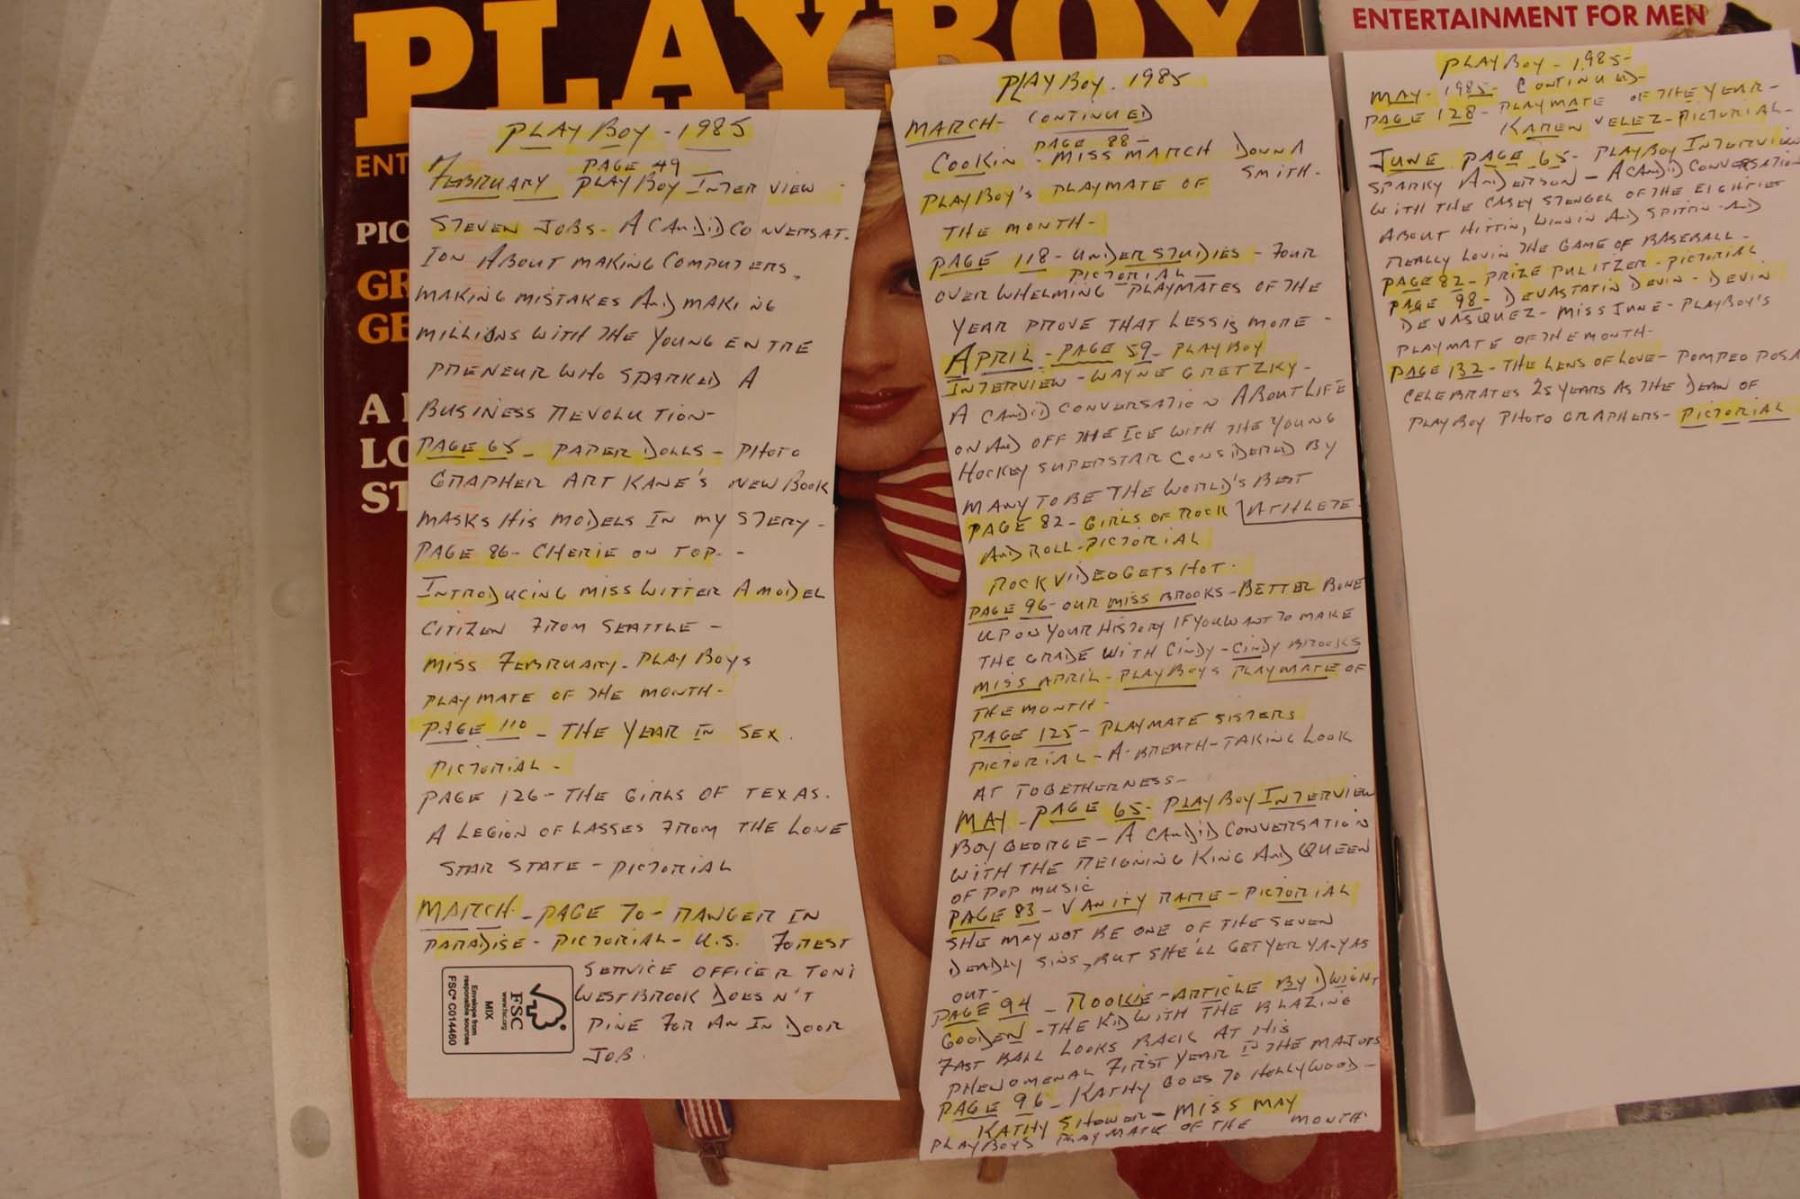 PLAYBOY
ENT
PIC
GR
GE
A
LO
ST
PLAYBOY - 1985
PAGE 49
FEBRUARY PLAYBOY INTERVIEW -
STEVEN JOBS - A CANDID CONVERSAT-
ION ABOUT MAKING COMPUTERS,
MAKING MISTAKES AND MAKING
MILLIONS WITH THE YOUNG ENTRE
PRENEUR WHO SPARKED A
BUSINESS REVOLUTION-
PAGE 65 - PAPER DOLLS - PHOTO
GRAPHER ART KANE'S NEW BOOK
MASKS HIS MODELS IN MYSTERY -
PAGE 86 - CHERIE ON TOP - -
INTRODUCING MISS WITTER A MODEL
CITIZEN FROM SEATTLE -
MISS FEBRUARY - PLAYBOYS
PLAYMATE OF THE MONTH -
PAGE 110 - THE YEAR IN SEX.
PICTORIAL -
PAGE 126 - THE GIRLS OF TEXAS.
A LEGION OF LASSES FROM THE LONE
STAR STATE - PICTORIAL
MARCH - PAGE 70 - RANGER IN
PARADISE - PICTORIAL - U.S. FOREST
SERVICE OFFICER TONI
WESTBROOK DOESN'T
PINE FOR AN INDOOR
JOB.
FSC
www.fsc.org
MIX
Envelope from
responsible sources
FSC® C014460
PLAYBOY - 1985
MARCH - CONTINUED
PAGE 88 -
COOKIN - MISS MARCH DONNA
SMITH -
PLAYBOY'S PLAYMATE OF
THE MONTH -
PAGE 118 - UNDERSTUDIES - FOUR
PICTORIAL -
OVERWHELMING PLAYMATES OF THE
YEAR PROVE THAT LESS IS MORE -
APRIL - PAGE 59 - PLAYBOY
INTERVIEW - WAYNE GRETZKY -
A CANDID CONVERSATION ABOUT LIFE
ON AND OFF THE ICE WITH THE YOUNG
HOCKEY SUPERSTAR CONSIDERED BY
MANY TO BE THE WORLD'S BEST
ATHLETE -
PAGE 82 - GIRLS OF ROCK
AND ROLL - PICTORIAL
ROCK VIDEO GETS HOT -
PAGE 96 - OUR MISS BROOKS - BETTER BONE
UP ON YOUR HISTORY IF YOU WANT TO MAKE
THE GRADE WITH CINDY - CINDY BROOKS
MISS APRIL - PLAYBOYS PLAYMATE OF
THE MONTH -
PAGE 125 - PLAYMATE SISTERS
PICTORIAL - A BREATH-TAKING LOOK
AT TOGETHERNESS -
MAY - PAGE 65 - PLAYBOY INTERVIEW
BOY GEORGE - A CANDID CONVERSATION
WITH THE REIGNING KING AND QUEEN
OF POP MUSIC
PAGE 83 - VANITY RARE - PICTORIAL
SHE MAY NOT BE ONE OF THE SEVEN
DEADLY SINS, BUT SHE'LL GET YER YA-YAS
OUT -
PAGE 94 - ROOKIE - ARTICLE BY DWIGHT
GOODEN - THE KID WITH THE BLAZING
FAST BALL LOOKS BACK AT HIS
PHENOMENAL FIRST YEAR IN THE MAJORS
PAGE 96 - KATHY GOES TO HOLLYWOOD -
KATHY SHOWER - MISS MAY
PLAYBOYS PLAYMATE OF THE MONTH
ENTERTAINMENT FOR MEN
PLAYBOY - 1985 -
MAY - 1985 - CONTINUED -
PAGE 128 - PLAYMATE OF THE YEAR -
KAREN VELEZ - PICTORIAL -
JUNE PAGE 65 - PLAYBOY INTERVIEW
SPARKY ANDERSON - A CANDID CONVERSATION
WITH THE CASEY STENGEL OF THE EIGHTIES
ABOUT HITTIN, WINNIN AND SPITTIN AND
REALLY LOVIN THE GAME OF BASEBALL -
PAGE 82 - PRIZE PULITZER - PICTORIAL
PAGE 98 - DEVASTATIN DEVIN - DEVIN
DEVASQUEZ - MISS JUNE - PLAYBOY'S
PLAYMATE OF THE MONTH -
PAGE 132 - THE LENS OF LOVE - POMPEO POSA
CELEBRATES 25 YEARS AS THE DEAN OF
PLAYBOY PHOTOGRAPHERS - PICTORIAL